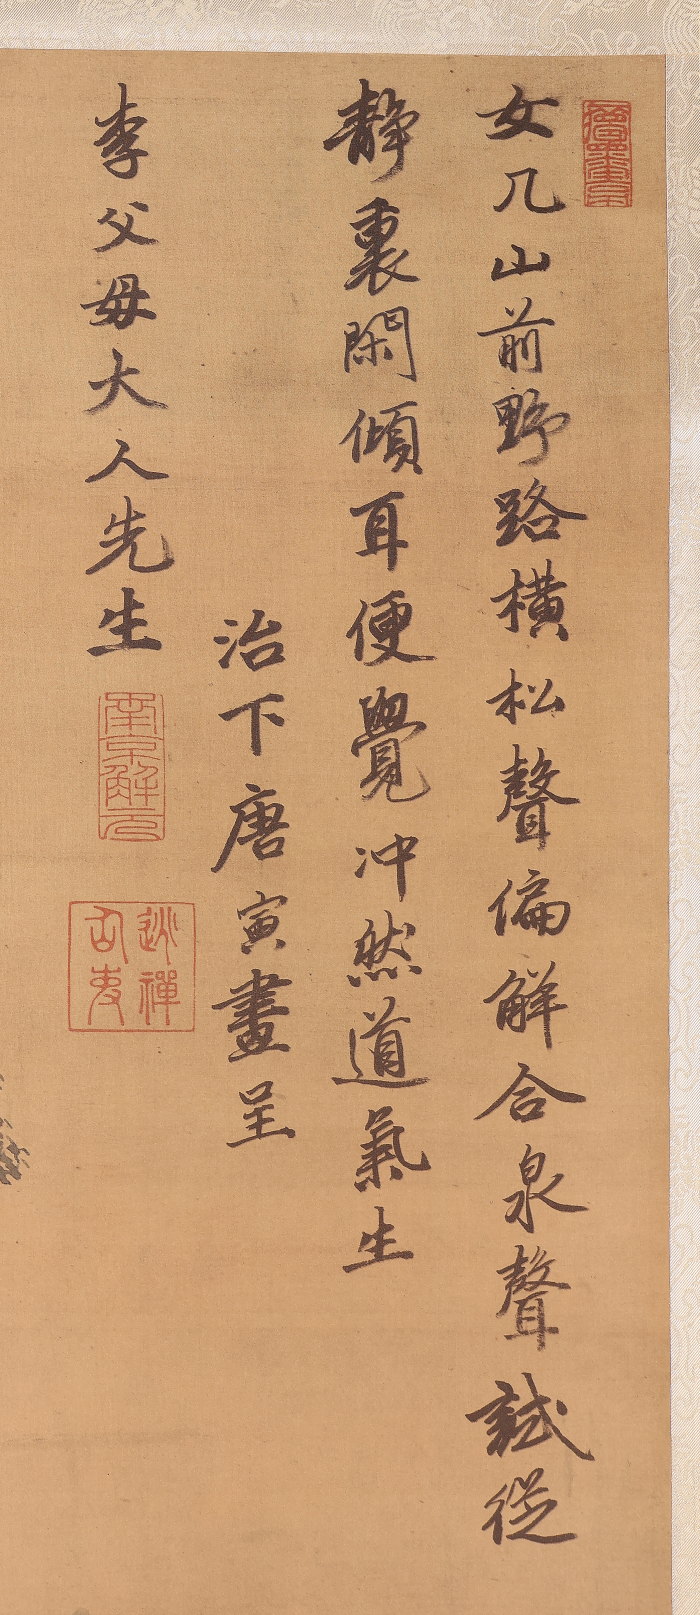 女几山前野路橫松聲偏解合泉聲試從
靜裏閑傾耳便覺冲然道氣生
治下唐寅畫呈
李父母大人先生
南京解元
逃禪
仙吏